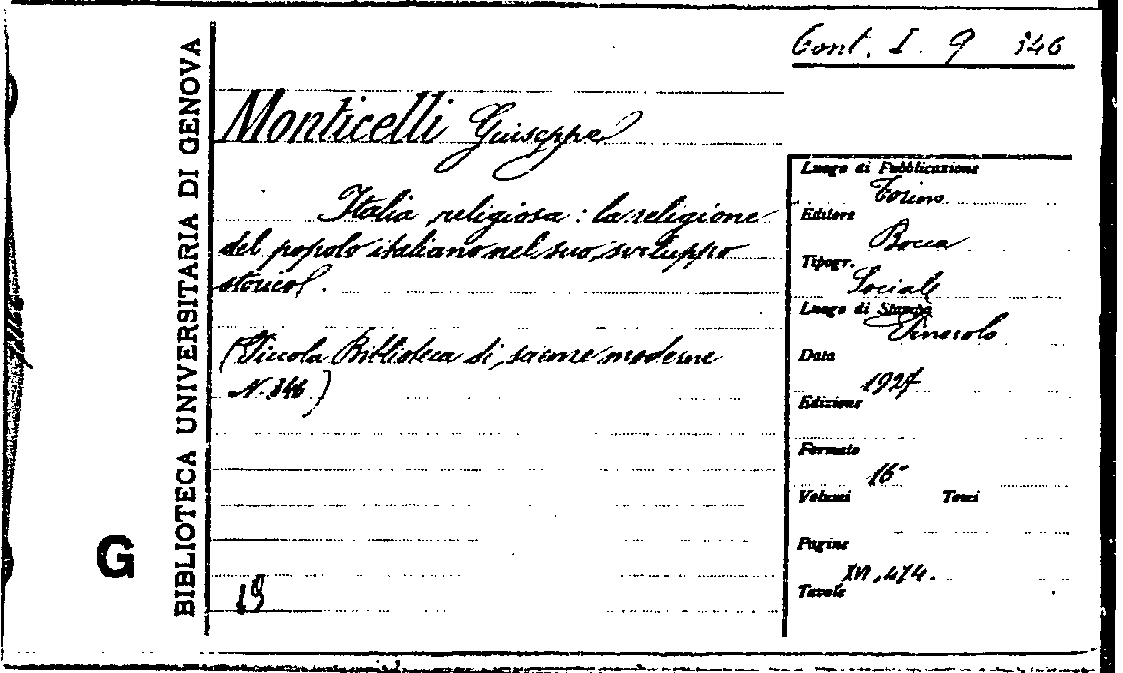 Cont. I. 9 346
BIBLIOTECA UNIVERSITARIA DI GENOVA
Monticelli Giuseppe
Italia religiosa : la religione
del popolo italiano nel suo sviluppo
storico.
(Piccola Biblioteca di scienze moderne
N. 346.)
G
19
Luogo di Pubblicazione
Torino
Editore
Bocca
Tipogr.
Sociale
Luogo di Stampa
Pinerolo
Data
1927
Edizione
Formato
16°
Volumi Tomi
Pagine
474.
Tavole